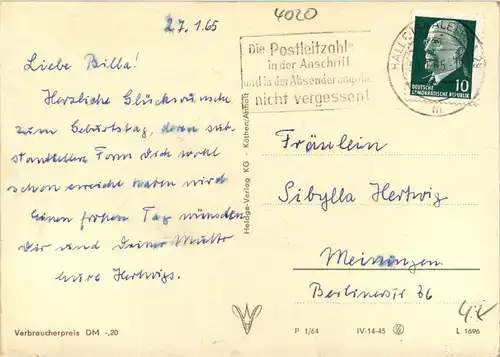 4020
27.1.65
Die Postleitzahl
in der Anschrift
und in der Absenderangabe
nicht vergessen!
HALLE
10
DEUTSCHE
DEMOKRATISCHE REPUBLIK
m
Liebe Billa!
Herzliche Glückwünsche
zum Geburtstag, deren sub-
stantiellere Form Dich wohl
schon erreicht haben wird
Einen frohen Tag wünschen
Dir und Deiner Mutti
Eure Hertwigs.
Fräulein
Sibylla Hertwig
Meiningen
Berlinerstr 36
Heldge-Verlag KG · Köthen/Anhalt
Verbraucherpreis DM -,20
P 1/64 IV-14-45 L 1696